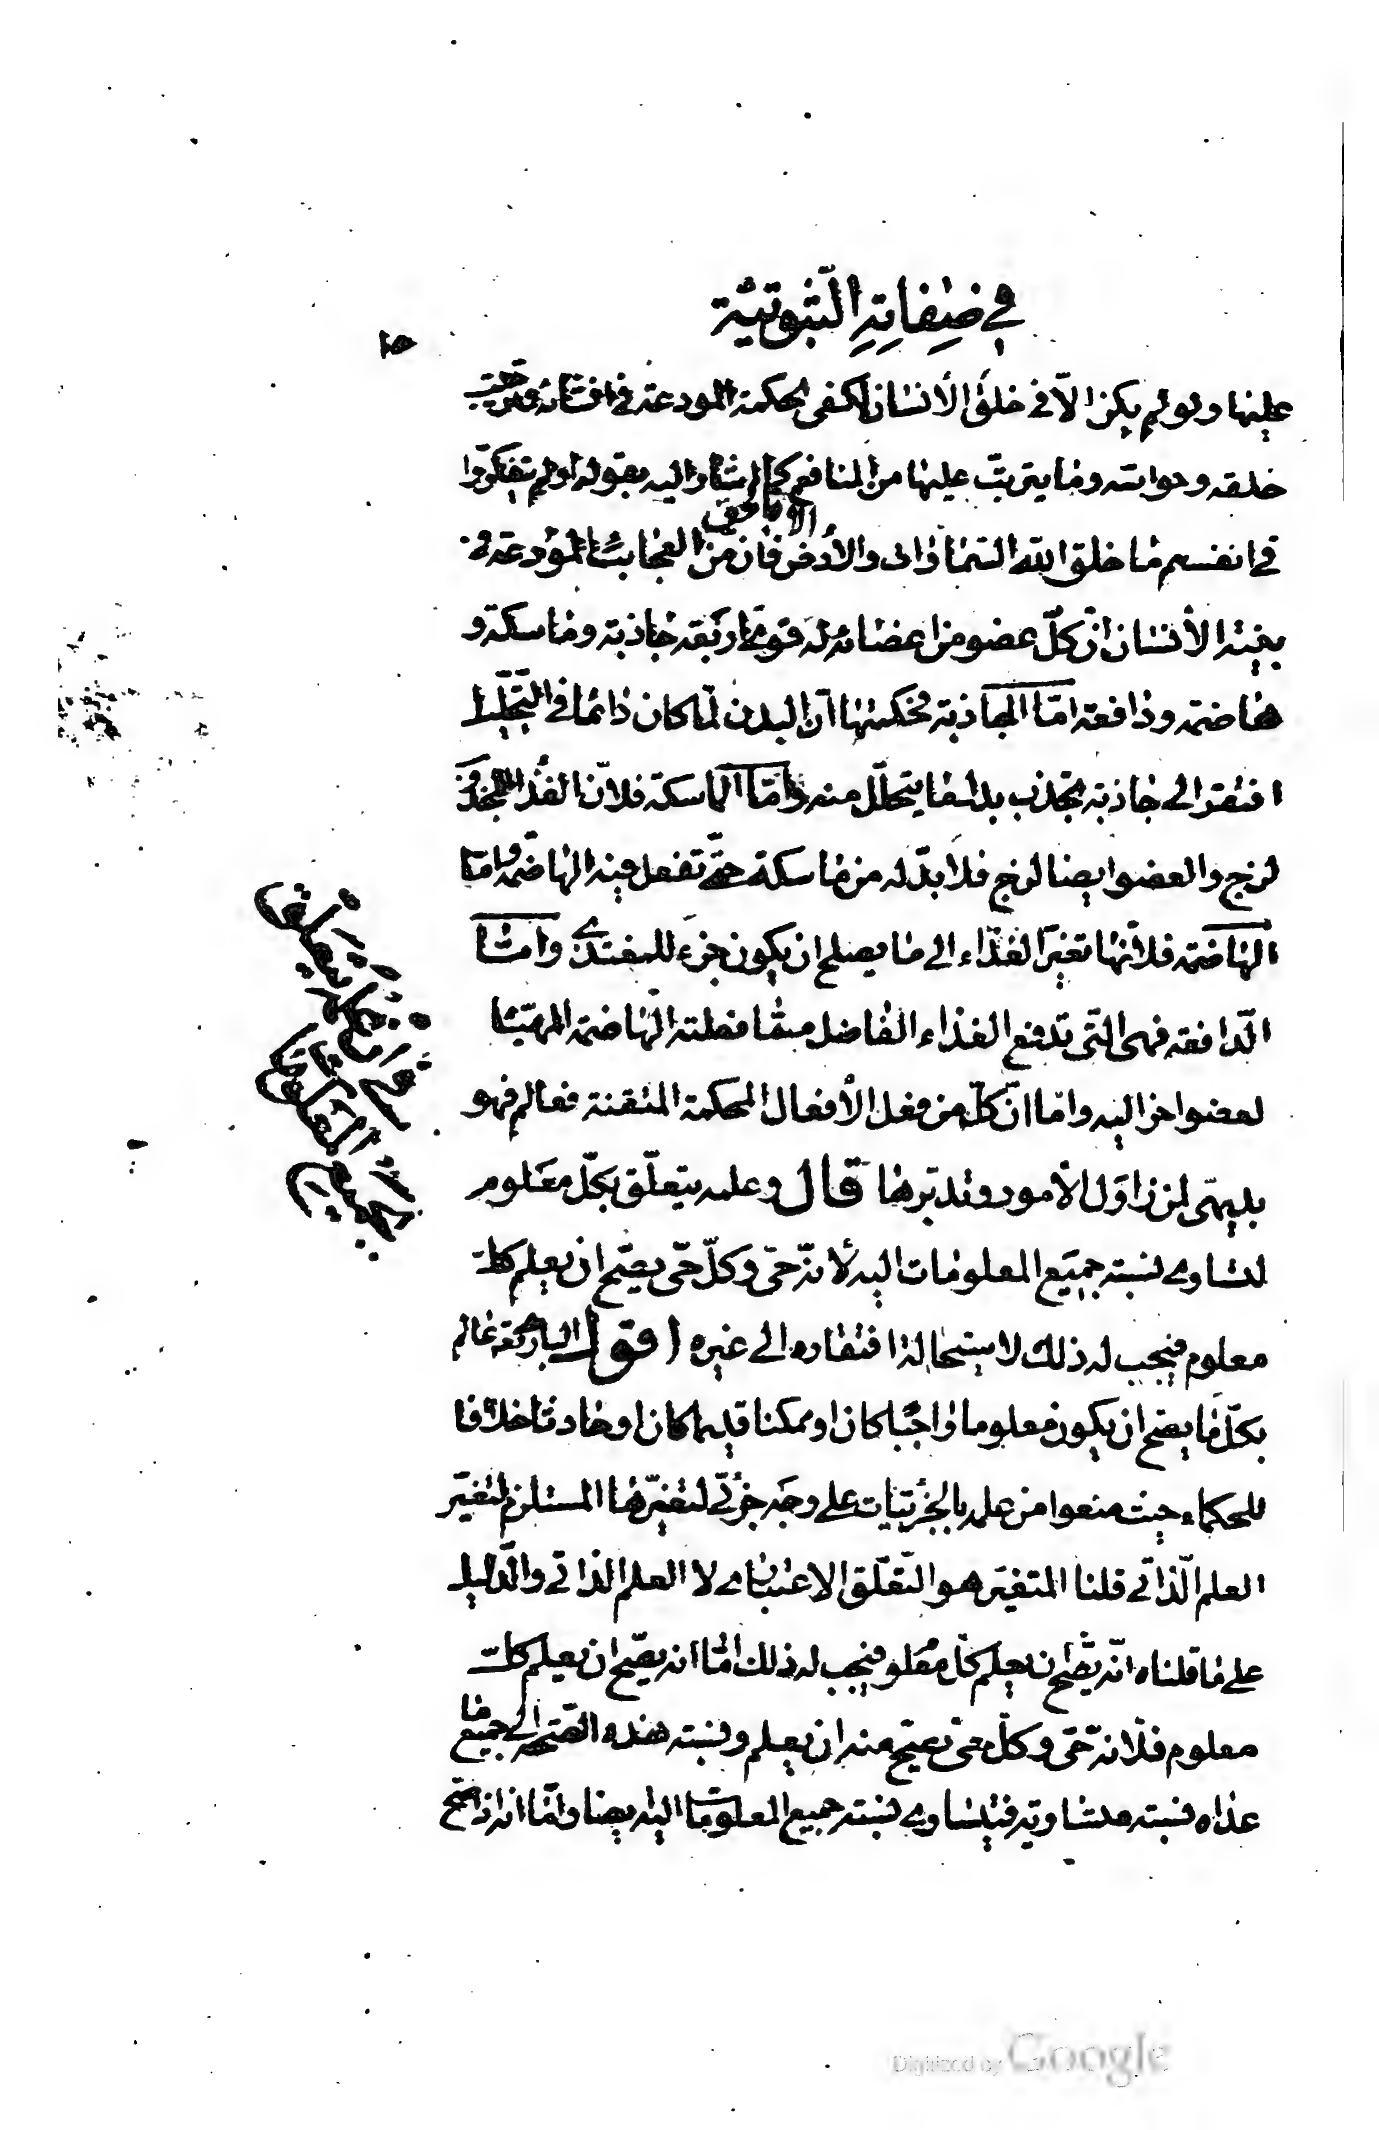 في صفاته الثبوتية
١٥
عليها ولو لم يكن الّا في خلق الأنسان لكفى الحكمة المودعة في انشائه وترتيب
خلقه وحواسه وما يترتب عليها من المنافع كما اشار اليه بقوله اولم يتفكروا
في انفسهم ما خلق الله السّماوات والأرض الا بالحق فان من العجايب المودعة في
بنية الأنسان انّ كلّ عضو من اعضائه له قوى اربعة جاذبة وماسكة و
هاضمة ودافعة امّا الجاذبة فحكمتها انّ البدن لمّا كان دائما في التحليل
افتقر الى جاذبة تجذب بدل ما يتحلّل منه وامّا الماسكة فلانّ الغذاء المجذوب
لزج والعضو ايضا لزج فلا بدّ له من ماسكة حتّى تفعل فيه الهاضمة وامّا
الهاضمة فلانّها تغيّر الغذاء الى ما يصلح ان يكون جزء للمغتذي وامّا
الدّافعة فهي الّتي تدفع الغذاء الفاضل ممّا فعلته الهاضمة المهيّا
لعضو اخر اليه وامّا انّ كلّ من فعل الأفعال المحكمة المتقنة فعالم فهو
بديهي لمن زاول الأمور وتدبّرها قال وعلمه يتعلّق بكلّ معلوم
لتساوي نسبة جميع المعلومات اليه لأنّه حيّ وكلّ حيّ يصحّ ان يعلم كل
معلوم فيجب له ذلك لاستحالة افتقاره الى غيره اقول الباري تعالى عالم
بكلّ ما يصح ان يكون معلوما واجبا كان او ممكنا قديما كان او حادثا خلافا
للحكماء حيث منعوا من علمه بالجزئيّات على وجه جزئيّ لتغيّرها المستلزم لتغيّر
العلم الّذاتي قلنا المتغيّر هو التعلّق الاعتباري لا العلم الذاتي والّدليل
على ما قلناه انّه يصحّ ان يعلم كلّ معلوم فيجب له ذلك امّا انه يصحّ ان يعلم كل
معلوم فلانّه حيّ وكلّ حيّ يصحّ منه ان يعلم ونسبة هذه الصّحّة الى جميع ما
عداه نسبة متساوية فيتساوى نسبة جميع المعلومات اليه ايضا وامّا انه اذا صحّ